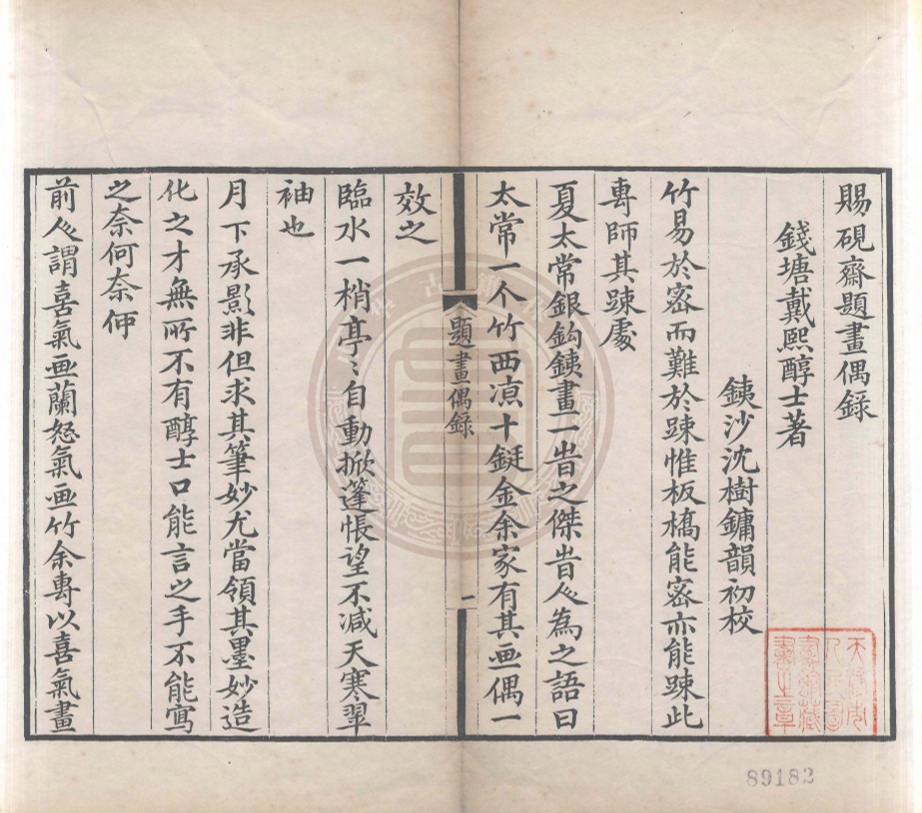 賜硯齋題畫偶錄
錢塘戴熙醇士著
銕沙沈樹鏞韻初校
竹易於宻而難於踈惟板橋能宻亦能踈此
專師其踈處
夏太常銀鈎銕畫一旹之傑旹人為之語曰
太常一个竹西凉十鋌金余家有其画偶一
題畫偶錄
一
效之
臨水一梢亭〻自動掀篷悵望不減天寒翠
袖也
月下承影非但求其筆妙尤當領其墨妙造
化之才無所不有醇士口能言之手不能寫
之奈何奈何
前人謂喜氣画蘭怒氣画竹余專以喜氣畫
天津市
人民圖
書館藏
書之章
89182